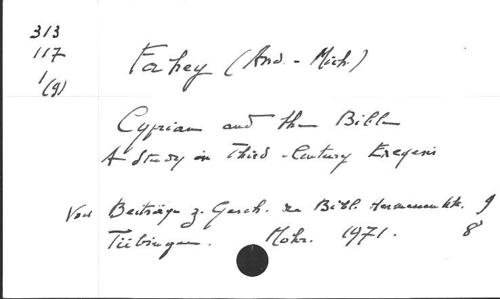 313
117
1
(9)
Fahey (And. - Mich.)
Cyprian and the Bible
A study in Third-Century Exegesis
Von Beiträge z. Gesch. der Bibl. Hermeneutik. 9
Tübingen. Mohr. 1971. 8°